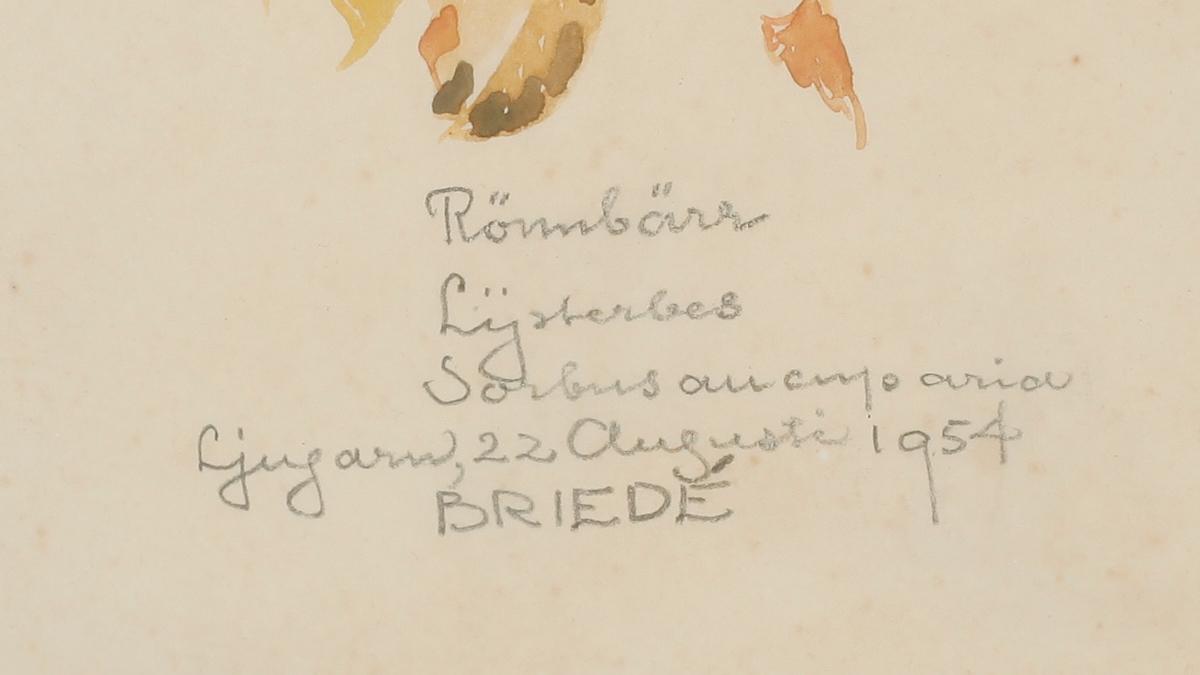 Rönnbärr
Lÿsterbes
Sorbus aucuparia
Ljugarn, 22 Augusti 1954
BRIEDÉ